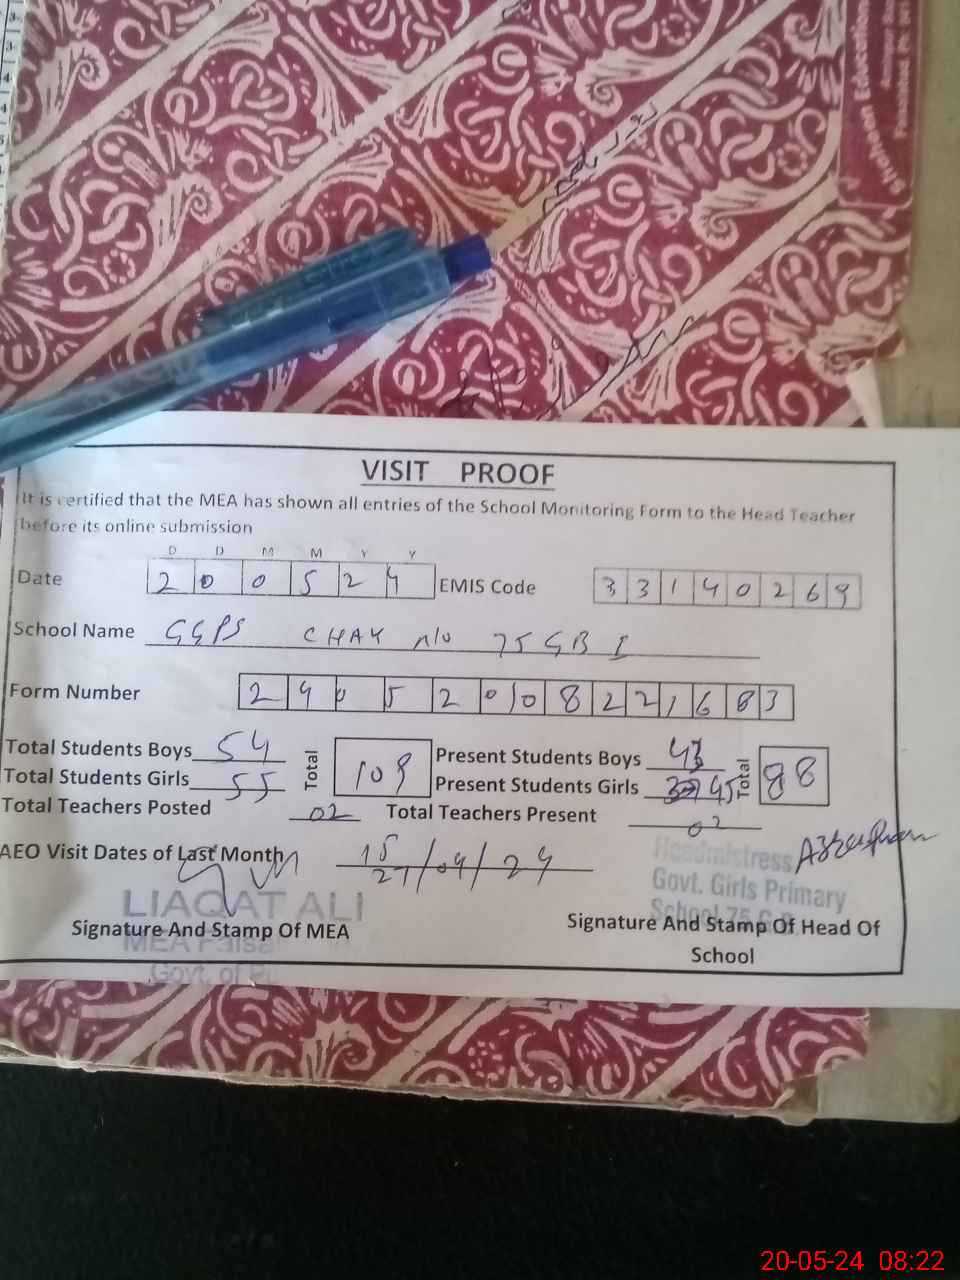 Shaheen Education
VISIT PROOF
It is certified that the MEA has shown all entries of the School Monitoring Form to the Head Teacher
before its online submission
D D M M Y Y
Date 2 0 0 5 2 4 EMIS Code 3 3 1 4 0 2 6 9
School Name GGPS CHAK n/o 75 GB I
Form Number 2 4 0 5 2 0 0 8 2 2 1 6 8 3
Total Students Boys 54 Total 109 Present Students Boys 43 Total 88
Total Students Girls 55 Present Students Girls 45
Total Teachers Posted 02 Total Teachers Present 02
AEO Visit Dates of Last Month 15 27/04/24
Headmistress
Govt. Girls Primary
School 75 G.B
LIAQAT ALI
Signature And Stamp Of MEA
Signature And Stamp Of Head Of
School
MEA Faisa
Govt. of P
20-05-24 08:22